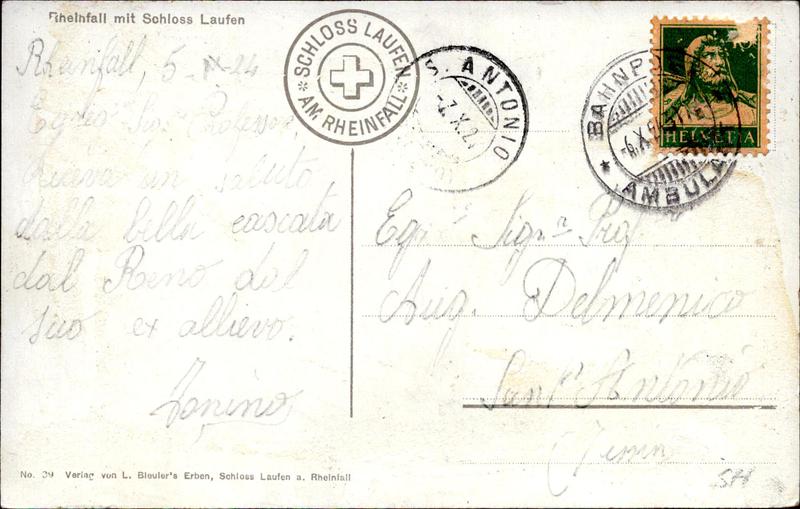 Rheinfall mit Schloss Laufen
Rheinfall, 5-X-24
Egregio Sig. Professore
Riceva un saluto
dalla bella cascata
dal Reno dal
suo ex allievo.
Tonino
No. 39 Verlag von L. Bleuler's Erben, Schloss Laufen a. Rheinfall
SCHLOSS LAUFEN
AM RHEINFALL
S. ANTONIO
-7.X.2
BAHNP
-6.X.
AMBULA
HELVETIA
Egr. Sign. Prof
Aug. Delmenico
Sant'Antonio
(Ticino